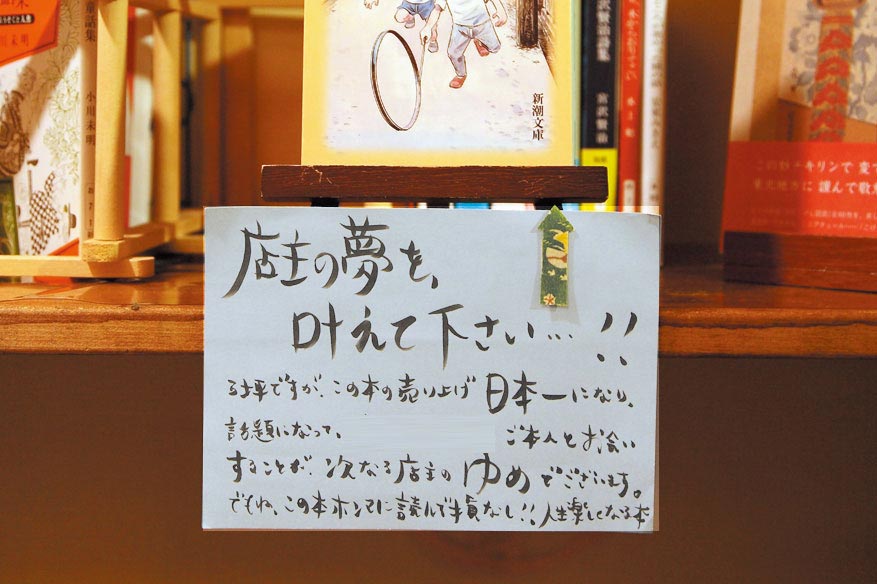 店主の夢を、
叶えて下さい…!!
5坪ですが、この本の売り上げ 日本一になり、
話題になって、 ご本人とお会い
することが、次なる店主の ゆめ でございます。
でもね、この本ホンマに読んで損なし!!人生楽しくなる本
新潮文庫
童話集
小川未明
宮沢賢治
東北地方に